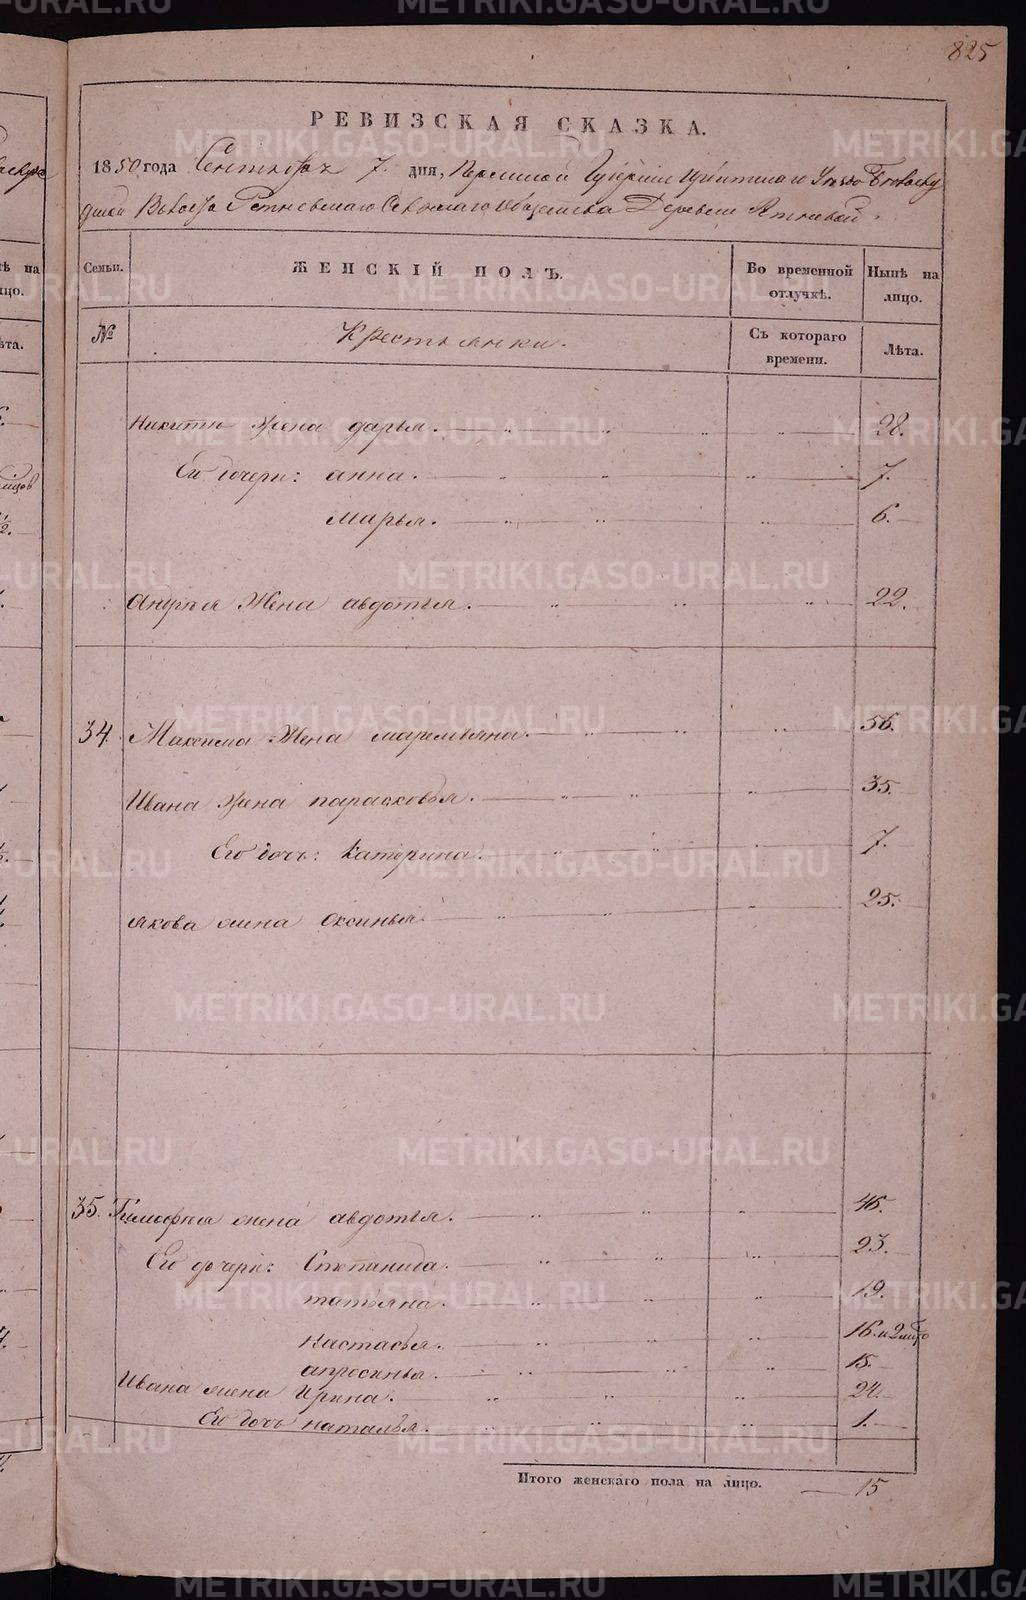 825
РЕВИЗСКАЯ СКАЗКА.
1850 года Сентября 7. дня, Пермской Губернии Ирбитского
Волости Сельского Общества Деревни
Семьи. ЖЕНСКІЙ ПОЛЪ. Во временной отлучкѣ. Нынѣ на лицо.
№ Крестьянки. Съ котораго времени. Лѣта.
Никиты жена дарья. 28.
Его дочери: анна. 7.
марья. 6.
Андрея Жена авдотья. 22.
34. Максима Жена маремьяна. 56.
Ивана жена парасковья. 35.
Его дочь: Катерина. 7.
якова жена Оксинья 25.
35. Тимофея жена авдотья. 46.
Его дочери: Степанида. 23.
татьяна. 19.
настасья. 16. и 2 мѣс
апросинья. 15.
Ивана жена Ирина. 24.
Его дочь наталья. 1.
Итого женскаго пола на лицо. 15
METRIKI.GASO-URAL.RU